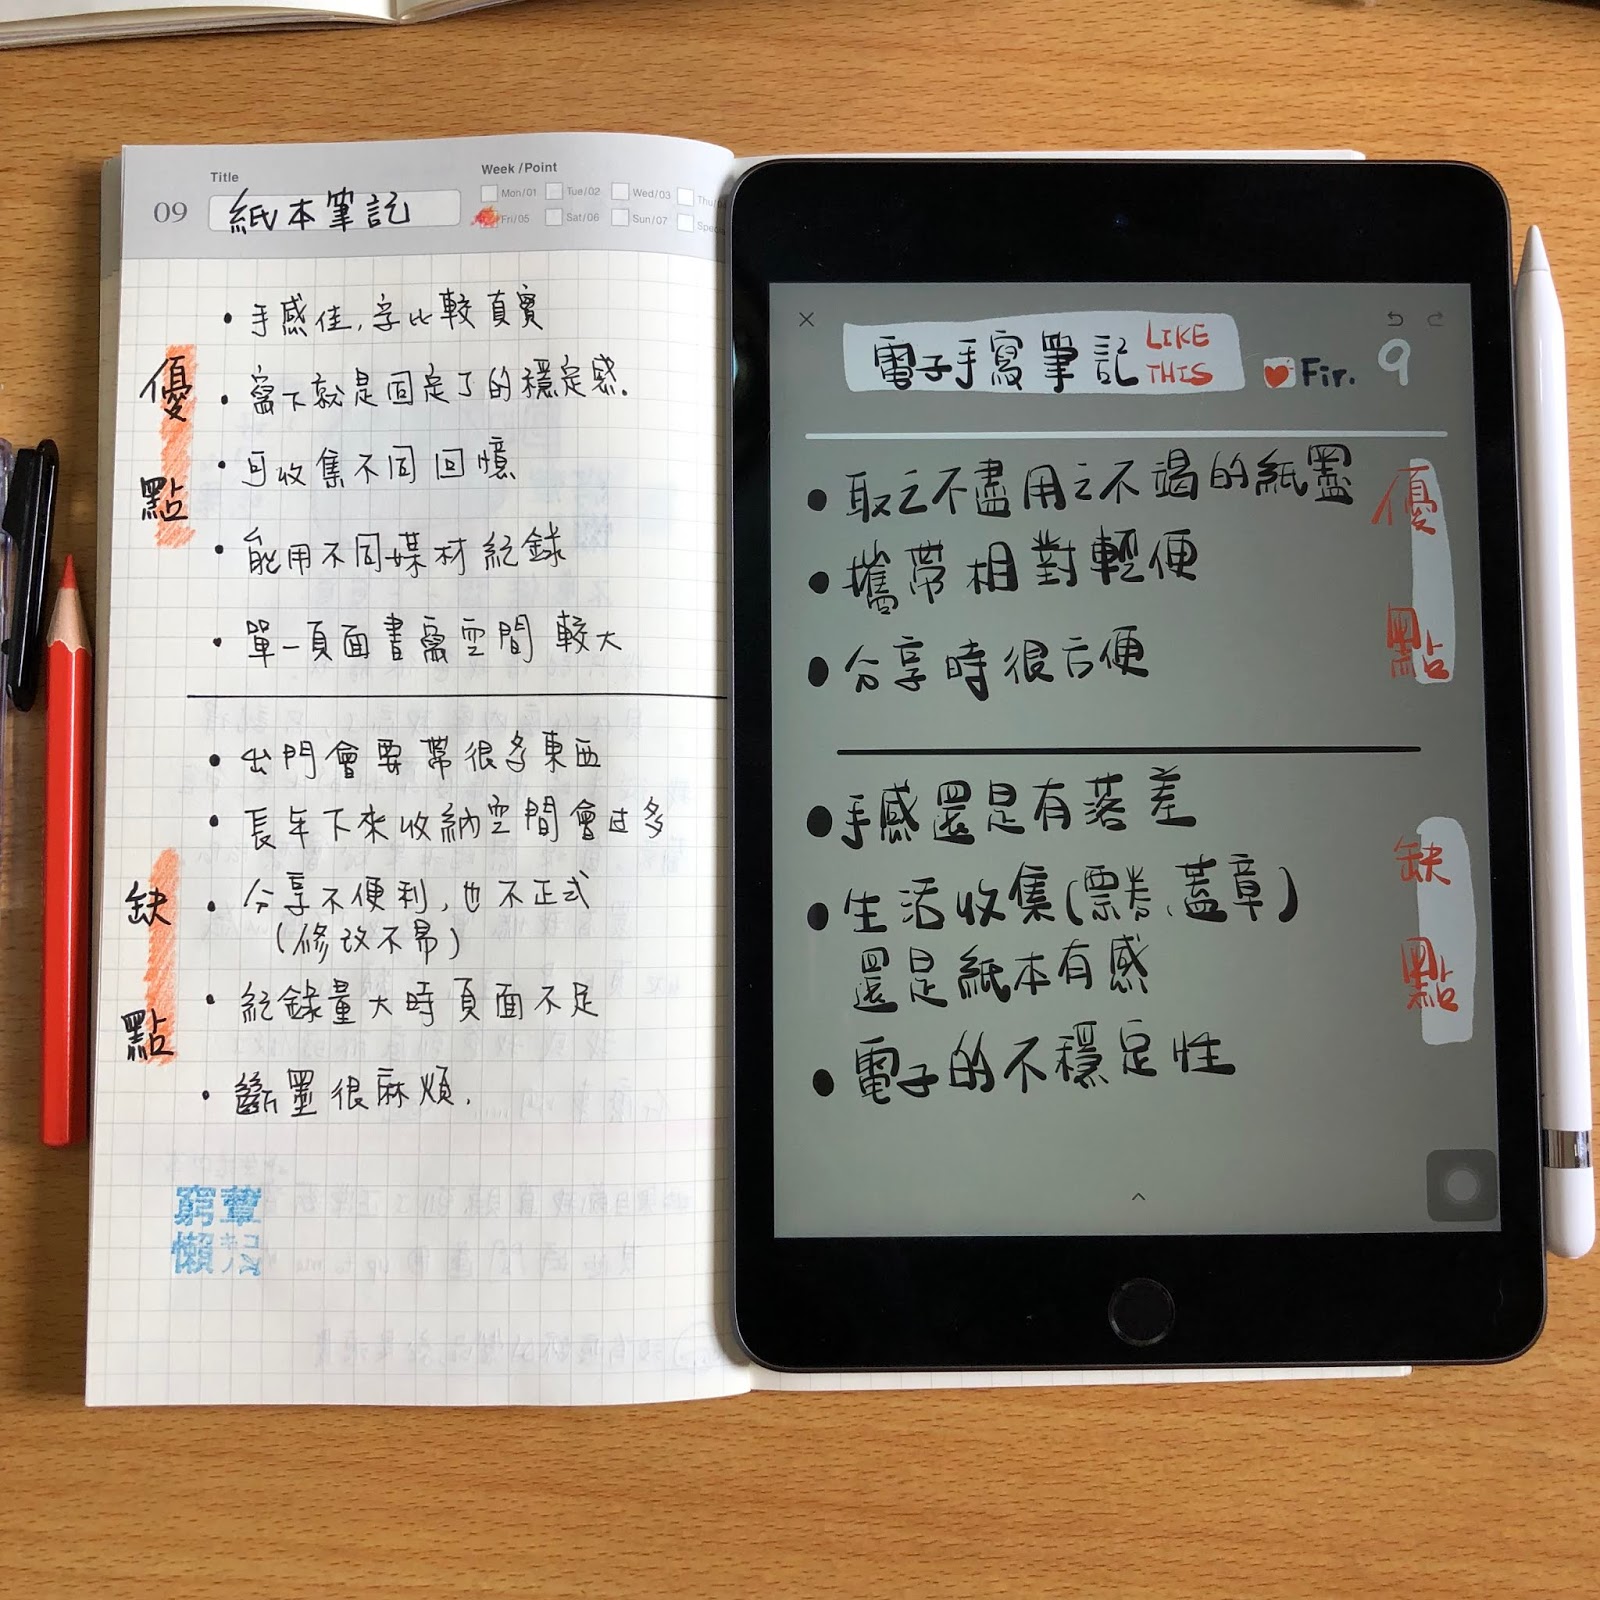 Title
Week/Point
09
紙本筆記
Mon/01 Tue/02 Wed/03 Thu/04
Fri/05 Sat/06 Sun/07
優點
• 手感佳,字比較真實
• 寫下就是固定了的穩定感.
• 可收集不同回憶
• 能用不同媒材紀錄
• 單一頁面書寫空間較大
缺點
• 出門會要帶很多東西
• 長年下來收納空間會过多
• 分享不便利,也不正式
(修改不易)
• 紀錄量大時頁面不足
• 斷墨很麻煩.
電子手寫筆記
LIKE
THIS
Fir.
9
優點
• 取之不盡用之不竭的紙墨
• 攜帶相對輕便
• 分享時很方便
缺點
• 手感還是有落差
• 生活收集(票券、蓋章)
還是紙本有感
• 電子的不穩定性